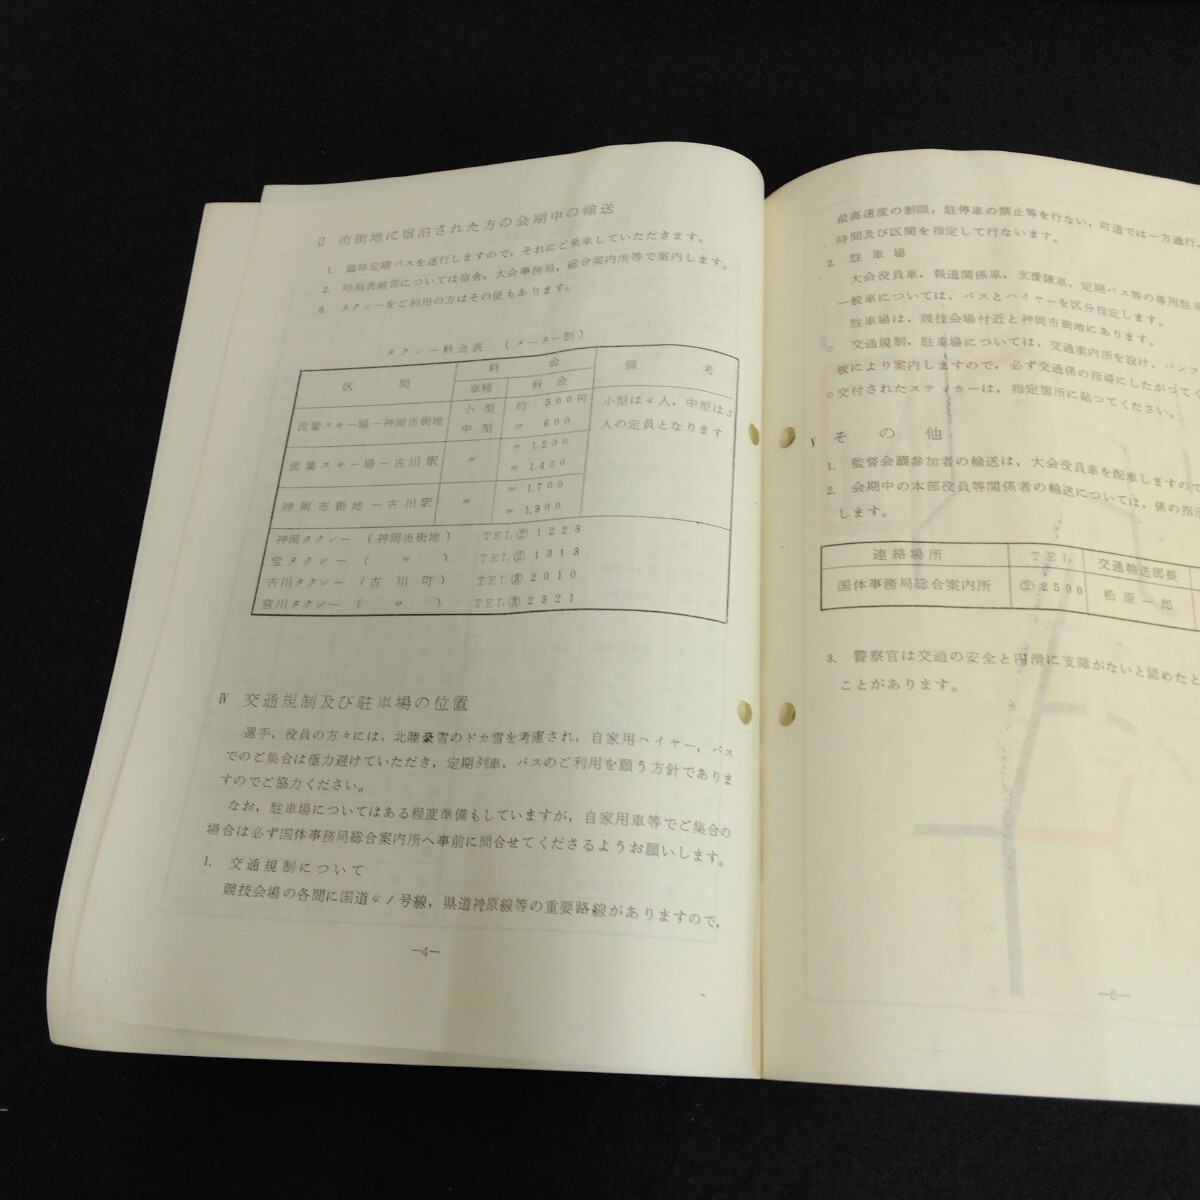 市街地に宿泊された方の会期中の輸送
1. 臨時定期バスを運行しますので，それにご乗車していただきます。
2. 時刻表細部については宿舎，大会事務局，総合案内所等で案内します。
3. タクシーをご利用の方はその便もあります。
タクシー料金表 （メーター制）
区 間 料 金 備 考
車種 料 金
流葉スキー場－神岡市街地 小 型 約 500円 小型は4人，中型は5
中 型 〃 600 人の定員となります
流葉スキー場－古川駅 〃 〃 1,200
〃 1,400
神岡市街地－古川駅 〃 〃 1,700
〃 1,900
神岡タクシー （神岡市街地） TEL② 1223
宝タクシー （ 〃 ） TEL② 1313
古川タクシー （古 川 町） TEL③ 2010
宮川タクシー （ 〃 ） TEL③ 2321
Ⅳ 交通規制及び駐車場の位置
選手，役員の方々には，北陸豪雪のドカ雪を考慮され，自家用ハイヤー，バス
でのご集合は極力避けていただき，定期列車，バスのご利用を願う方針でありま
すのでご協力ください。
なお，駐車場についてはある程度準備もしていますが，自家用車等でご集合の
場合は必ず国体事務局総合案内所へ事前に問合せてくださるようお願いします。
1. 交通規制について
競技会場の各間に国道41号線，県道神原線等の重要路線がありますので，
—4—
最高速度の制限，駐停車の禁止等を行ない，町道では一方通行，
時間及び区間を指定して行ないます。
2. 駐 車 場
大会役員車，報道関係車，支援隊車，定期バス等の専用駐車
一般車については，バスとハイヤーを区分指定します。
駐車場は，競技会場付近と神岡市街地にあります。
○ 交通規制，駐車場については，交通案内所を設け，パンフ
板により案内しますので，必ず交通係の指導にしたがつてく
○交付されたステッカーは，指定箇所に貼つてください。
Ⅴ そ の 他
1. 監督会議参加者の輸送は，大会役員車を配車しますので
2. 会期中の本部役員等関係者の輸送については，係の指示
します。
連絡場所 TEL 交通輸送部長
国体事務局総合案内所 ②2500 松原一郎
3. 警察官は交通の安全と円滑に支障がないと認めたと
ことがあります。
—5—